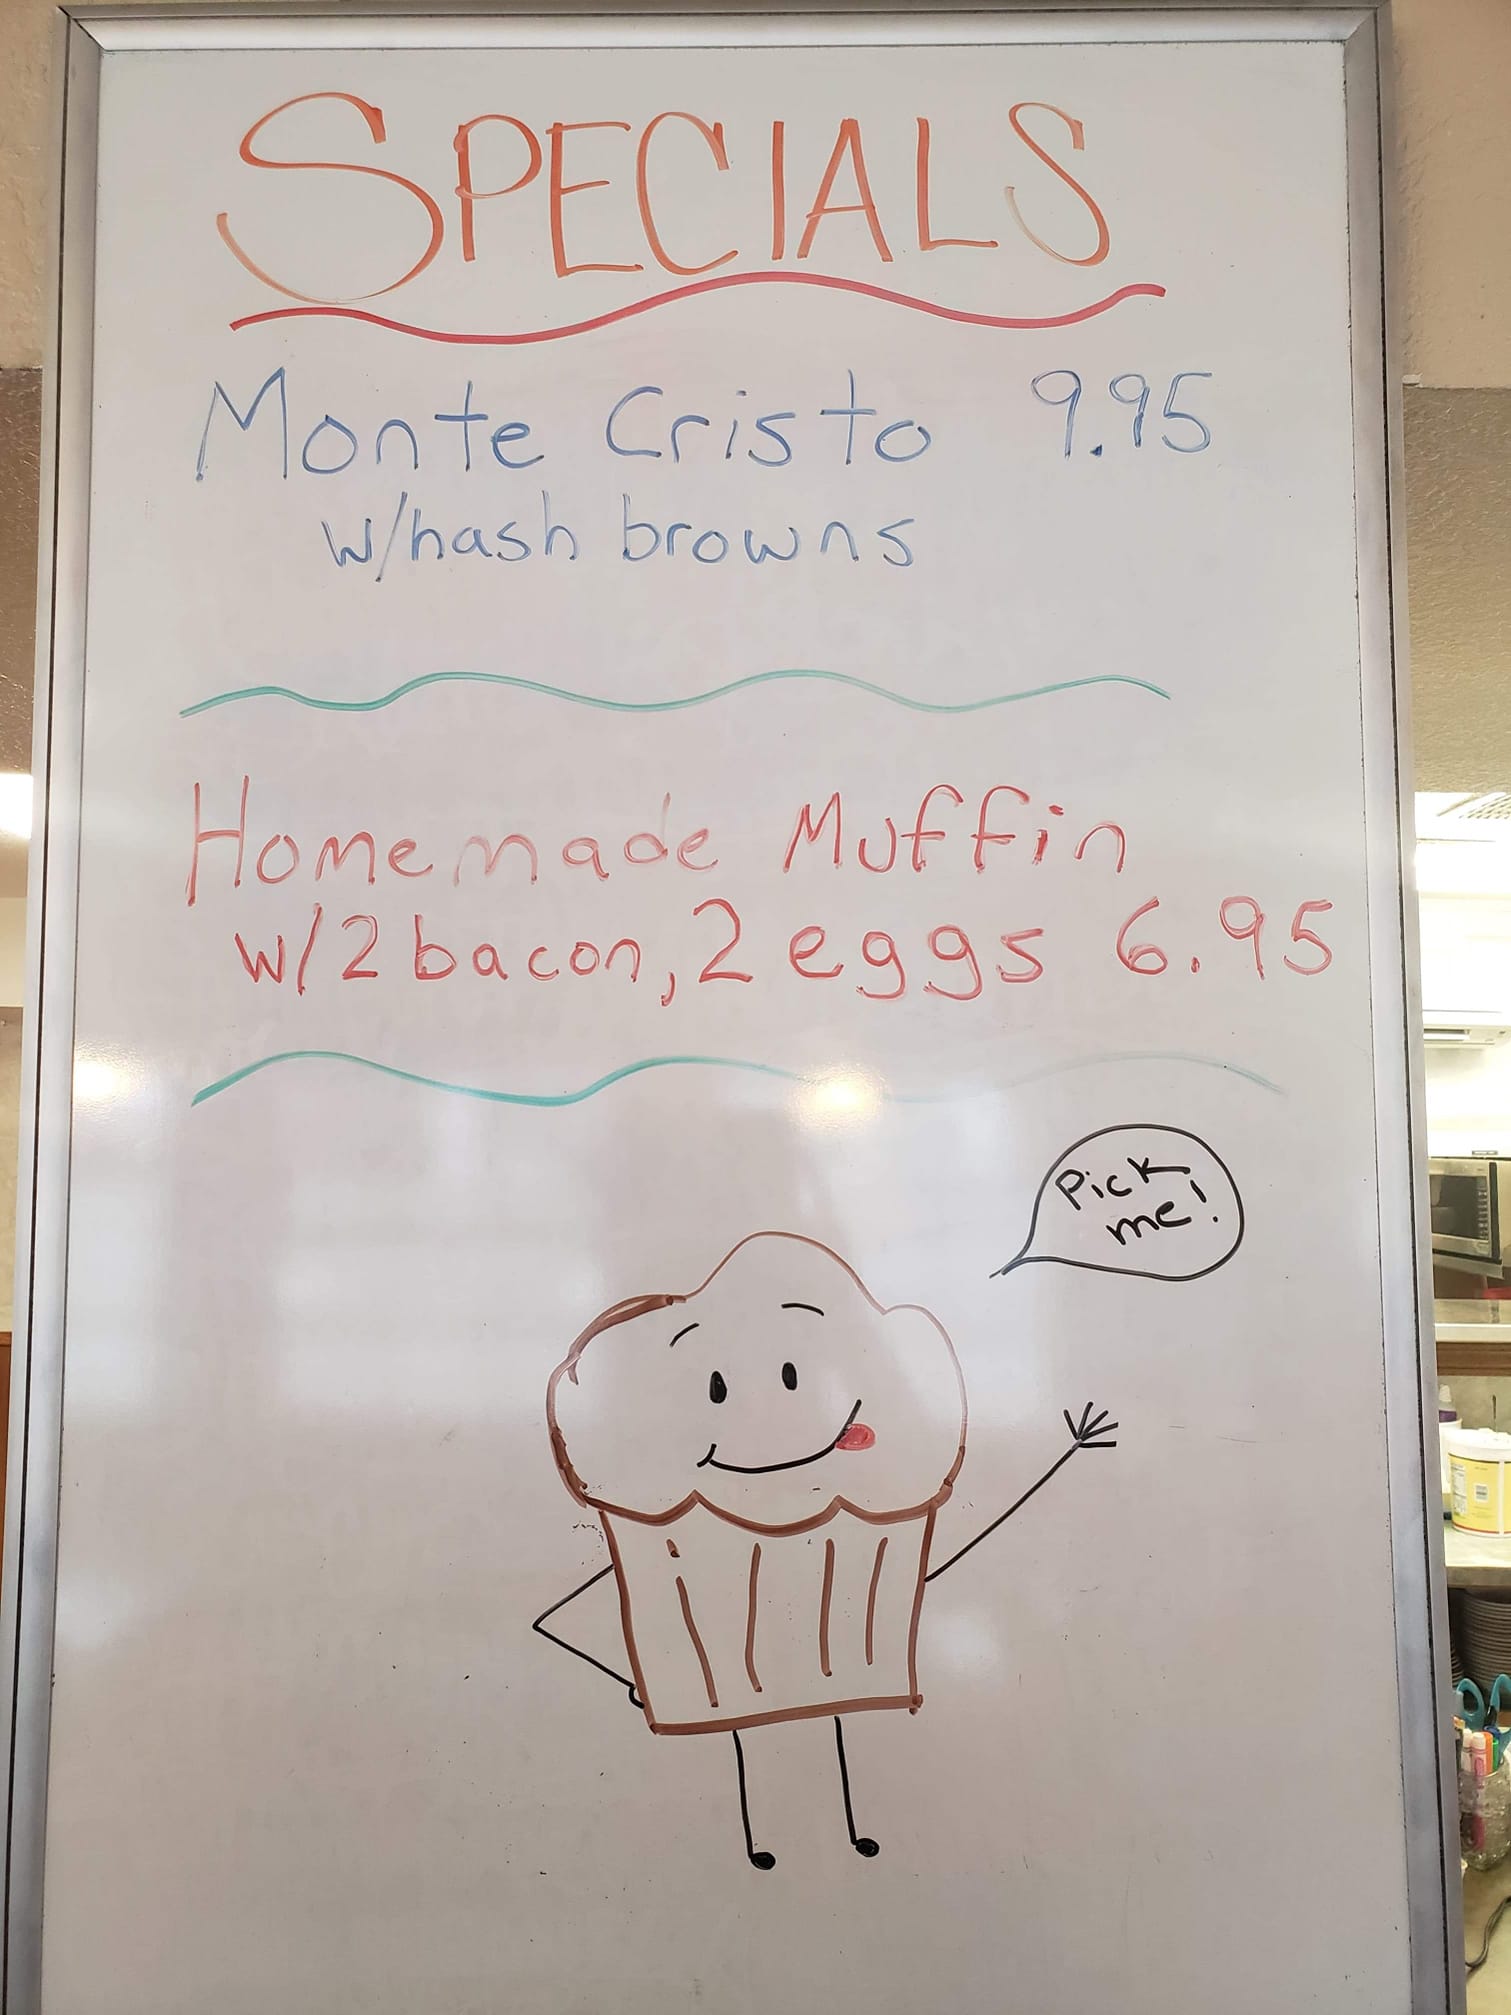 SPECIALS
Monte Cristo 9.95
w/hash browns
Homemade Muffin
w/2 bacon, 2 eggs 6.95
Pick
me!